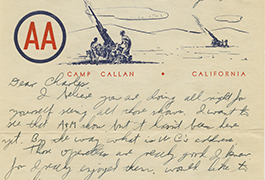 AA
CAMP CALLAN • CALIFORNIA
Dear Charles,
I believe you are doing all right for
yourself seeing all those shows. I want to
see that MGM show but it hasn't been here
yet. By the way what is W C's address
Those operettas are really good I know
for I really enjoyed them, would like to